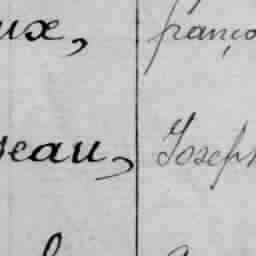 ux, franço
seau, Joseph